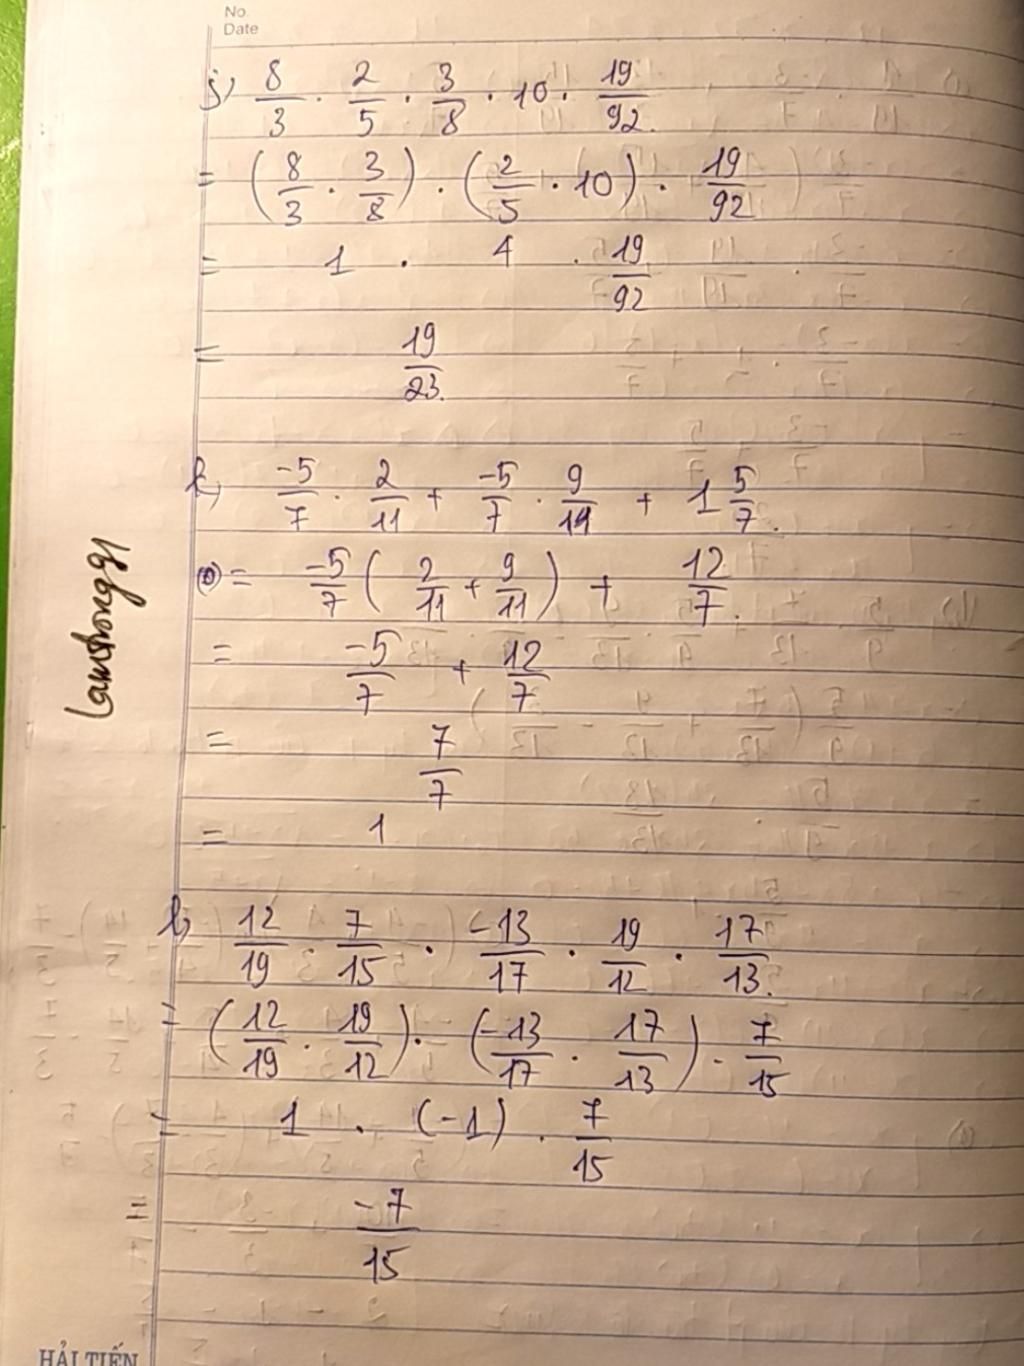 No.
Date
j, 8/3 . 2/5 . 3/8 . 10 . 19/92.
= (8/3 . 3/8) . (2/5 . 10) . 19/92
= 1 . 4 . 19/92
= 19/23.
k, -5/7 . 2/11 + -5/7 . 9/11 + 1 5/7.
= -5/7 ( 2/11 + 9/11 ) + 12/7.
= -5/7 + 12/7
= 7/7
= 1
l, 12/19 . 7/15 . -13/17 . 19/12 . 17/13.
= (12/19 . 19/12) . (-13/17 . 17/13) . 7/15
= 1 . (-1) . 7/15
= -7/15
HẢI TIẾN